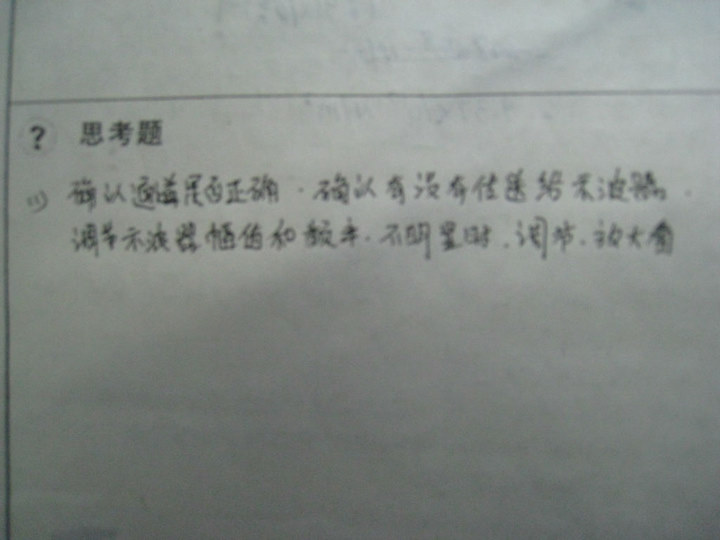 ? 思考题
(1) 确认通道是否正确.确认有没有信号给示波器.
调节示波器幅值和频率.不明显时,调节.放大看